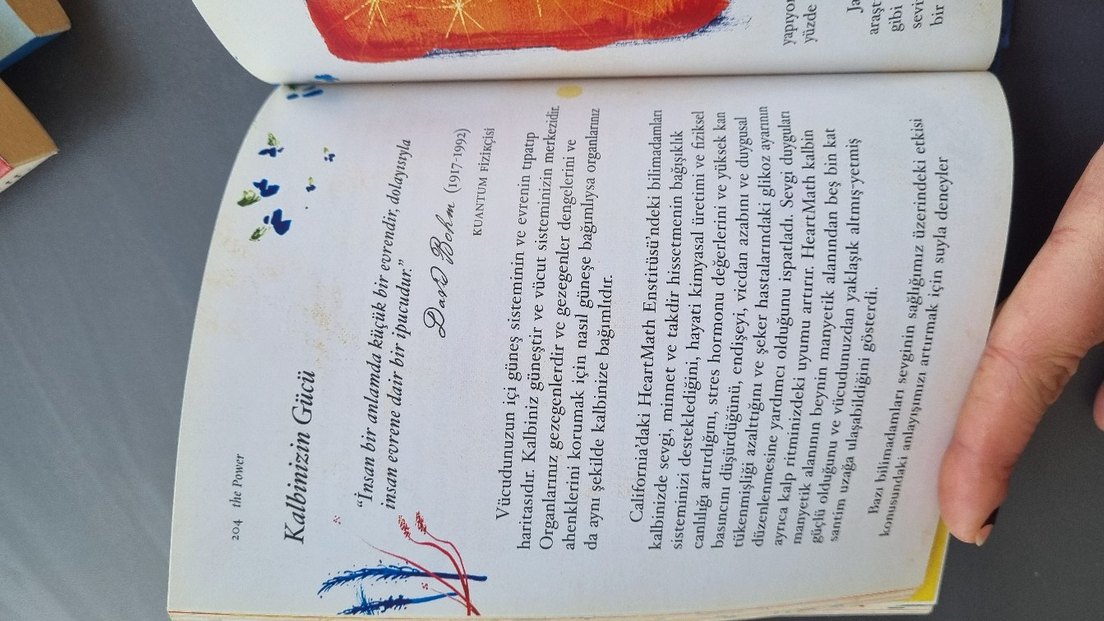 204 the Power
Kalbinizin Gücü
“İnsan bir anlamda küçük bir evrendir, dolayısıyla
insan evrene dair bir ipucudur.”
David Bohm (1917-1992)
KUANTUM FİZİKÇİSİ
Vücudunuzun içi güneş sisteminin ve evrenin tıpatıp
haritasıdır. Kalbiniz güneştir ve vücut sisteminizin merkezidir.
Organlarınız gezegenlerdir ve gezegenler dengelerini ve
ahenklerini korumak için nasıl güneşe bağımlıysa organlarınız
da aynı şekilde kalbinize bağımlıdır.
California’daki HeartMath Enstitüsü’ndeki bilimadamları
kalbinizde sevgi, minnet ve takdir hissetmenin bağışıklık
sisteminizi desteklediğini, hayati kimyasal üretimi ve fiziksel
canlılığı artırdığını, stres hormonu değerlerini ve yüksek kan
basıncını düşürdüğünü, endişeyi, vicdan azabını ve duygusal
tükenmişliği azalttığını ve şeker hastalarındaki glikoz ayarının
düzenlenmesine yardımcı olduğunu ispatladı. Sevgi duyguları
ayrıca kalp ritminizdeki uyumu artırır. HeartMath kalbin
manyetik alanının beynin manyetik alanından beş bin kat
güçlü olduğunu ve vücudunuzdan yaklaşık altmış-yetmiş
santim uzağa ulaşabildiğini gösterdi.
Bazı bilimadamları sevginin sağlığımız üzerindeki etkisi
konusundaki anlayışımızı artırmak için suyla deneyler
yapıyor
yüzde
Ja
araşt
gibi
sevi
bir